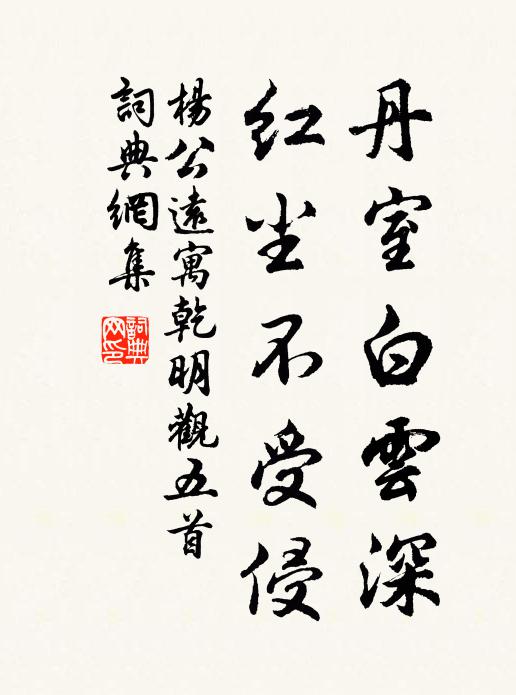 丹室白雲深
红尘不受侵
楊公遠寓乾明觀五首
詞典網集
詞典网印